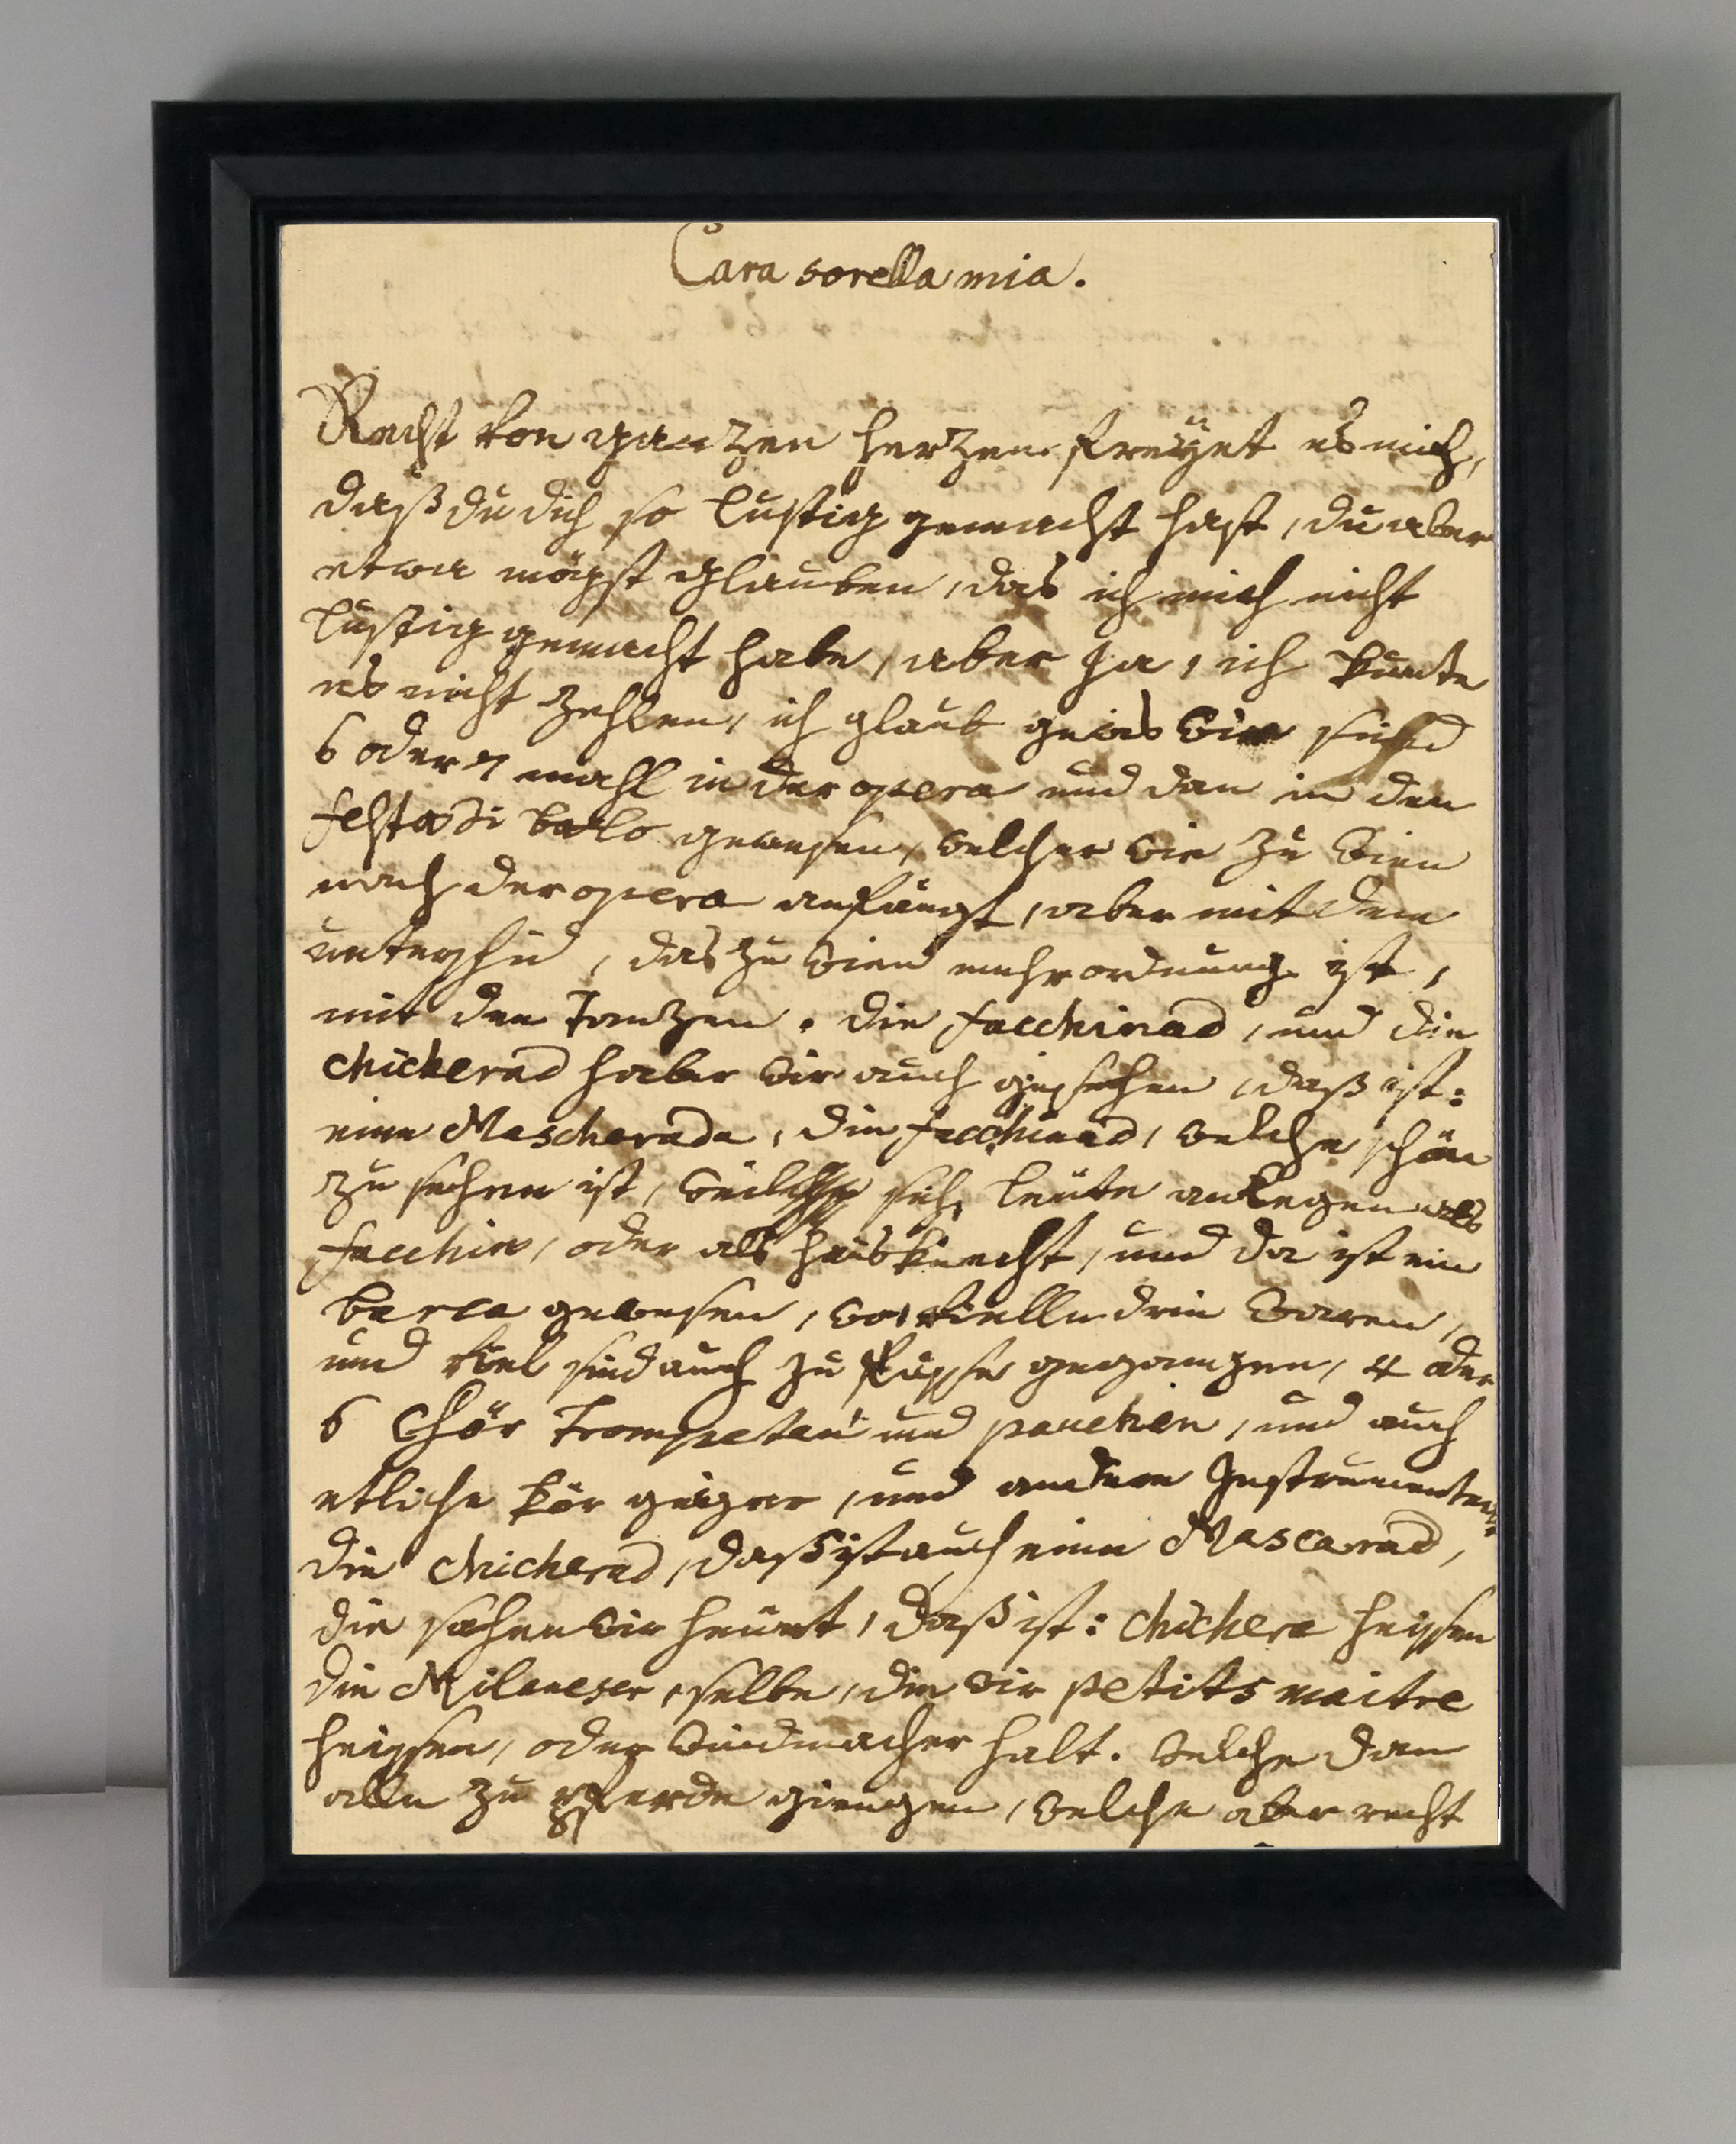 Cara sorella mia.
Recht von ganzen herzen freüet es mich,
daß du dich so lustig gemacht hast, du aber
etwa mögst glauben, das ich mich nicht
lustig gemacht habe, aber Ja, ich kunte
es nicht zehlen, ich glaub gewis wir sind
6 oder 7 mahl in der opera und dan in den
festa di ballo gewesen, welcher wie zu wien
nach der opera anfängt, aber mit dem
unterschid, das zu wien mehr ordnung ist,
mit den Tanzen. die facchinad, und die
chicherad haben wir auch gesehen, daß ist:
eine Mascherada, die facchinad, welche schön
zu sehen ist, weil sich leüte anlegen als
facchin, oder als hausknecht, und da ist ein
barca gewesen, wo vielle drin waren,
und viel sind auch zu fusse gegangen, 4 oder
6 Chör trompeten und paucken, und auch
etliche kör geigen, und andere Instrumenten
die chicherad, daß ist auch eine Mascarad,
die sahen wir heunt, daß ist: chichera heissen
die Milaneser, selbe, die wir petits maitre
heissen, oder windmacher halt. welche dan
alle zu Pferde giengen, welche aber recht